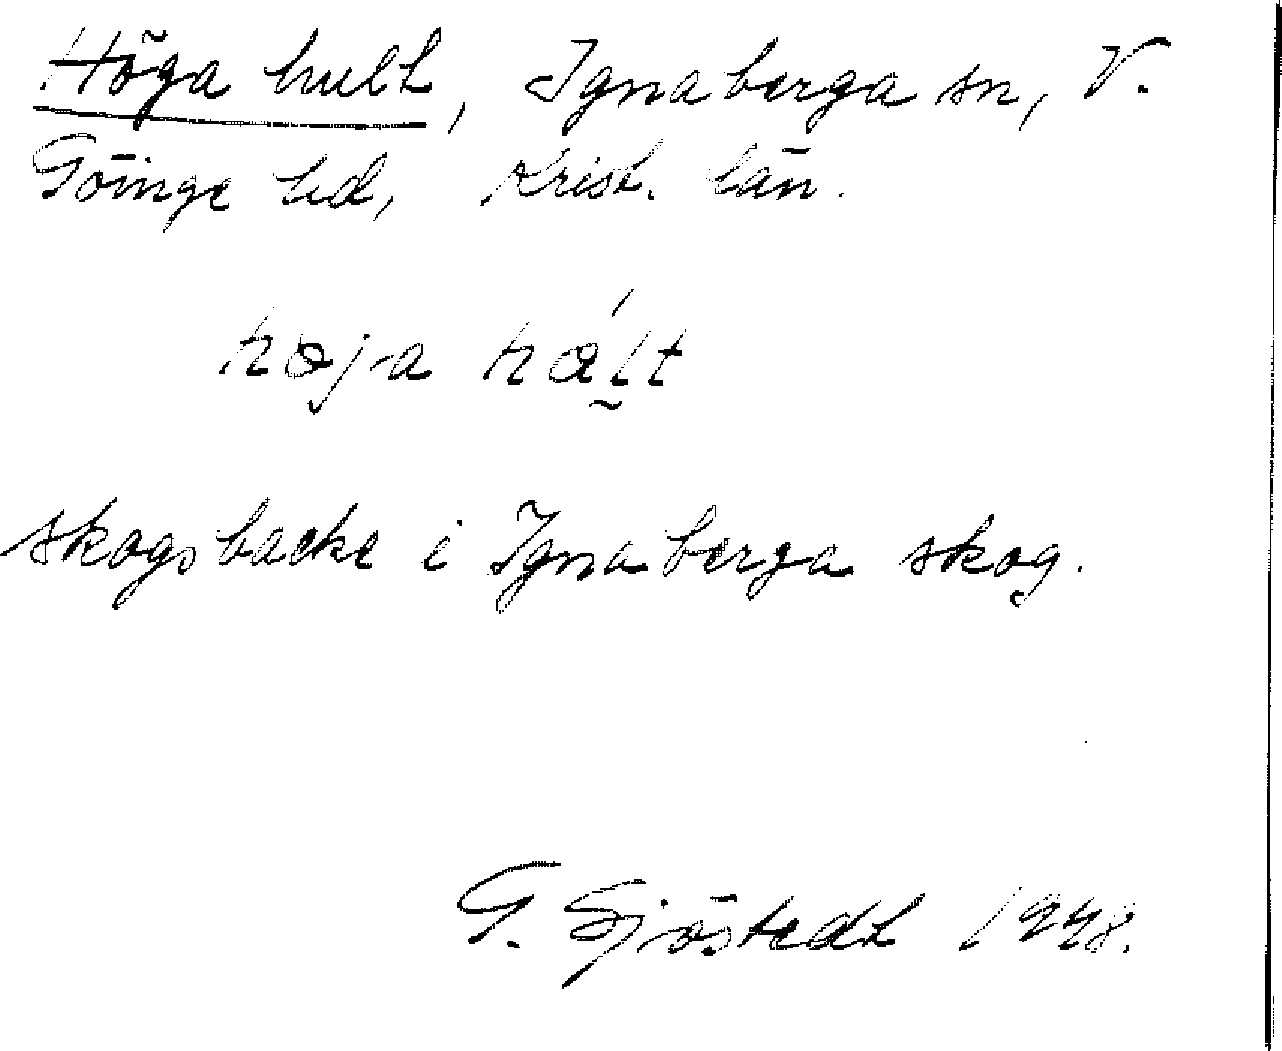 Höga hult, Ignaberga sn, V.
Göinge hd, Krist. län.
høja hált
skogsbacke i Ignaberga skog.
G. Sjöstedt 1948.